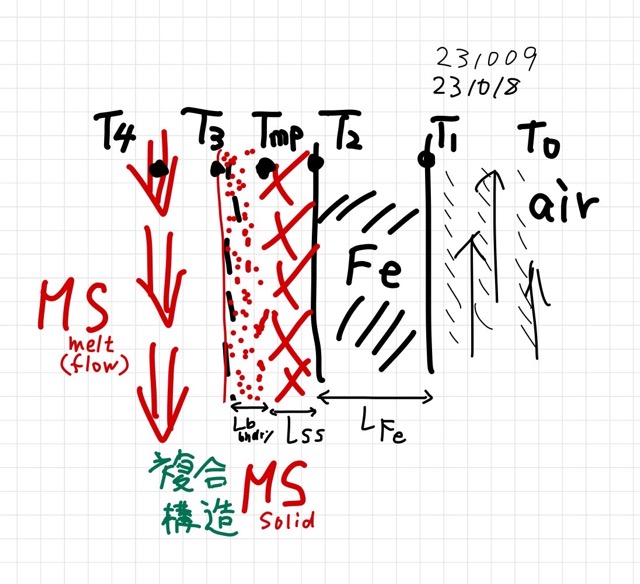 231009
231018
T4 T3 Tmp T2 T1 T0
air
Fe
MS
melt
(flow)
Lb
bndry
Lss
LFe
複合
構造
MS
Solid